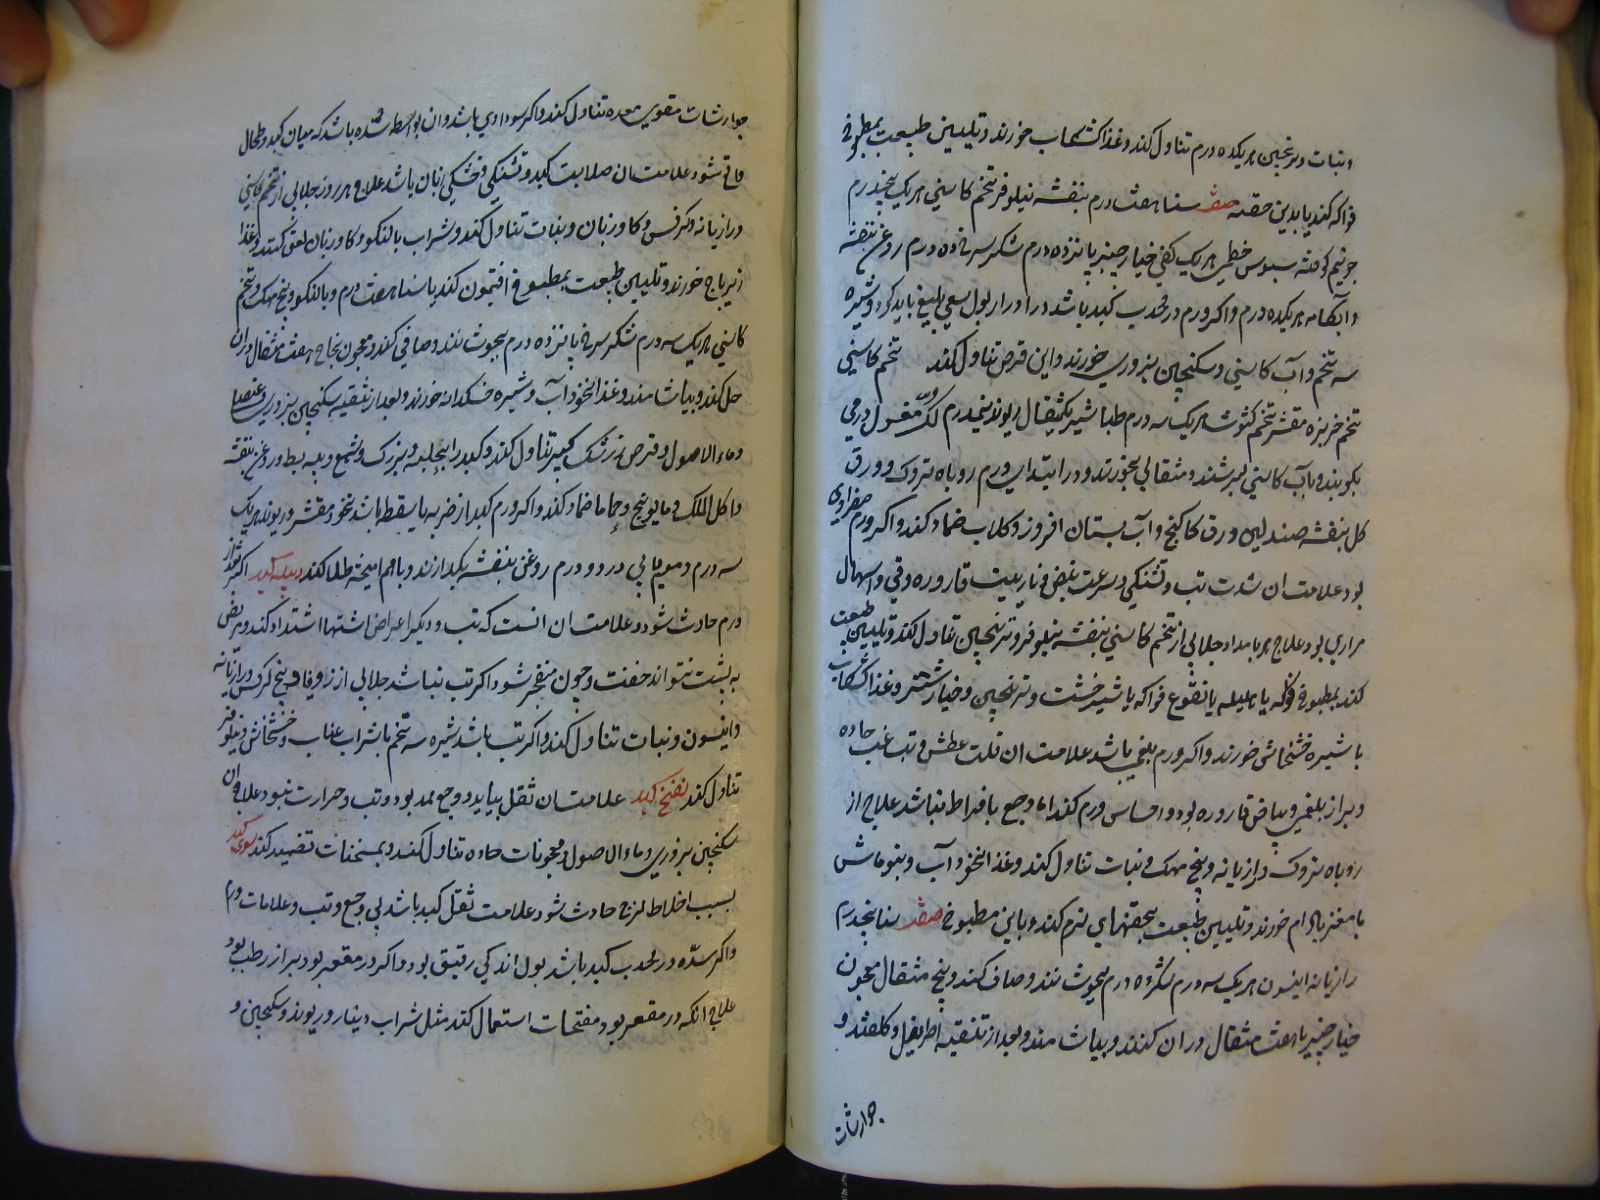 و نبات و ترنجبین هر یک ده درم تناول کند و غذا کشکاب خورند و تلیین طبیعت بمطبوخ
فواکه کند یا بدین حقنه صفت سنا هفت درم بنفشه نیلوفر تخم کاسنی هر یک پنجدرم
جو نیم کوفته سبوس خطمی هر یک کفی خیارچنبر پانزده درم شکر سرخ ده درم روغن بنفشه
و آبکامه هر یک ده درم و اکر ورم در محدب کبد باشد در ادرار بول سعی بلیغ باید کرد و شیره
سه تخم و آب کاسنی و سکنجبین بزوری خورند و این قرص تناول کند تخم کاسنی
تخم خربزه مقشر تخم کثوث هر یک سه درم طباشیر یکمثقال ریوند نیمدرم لک مغسول درمی
بکوبند و بآب کاسنی بسرشند و مثقالی بخورند و در ابتدای ورم روباه تروک و ورق
کل بنفشه صندلین ورق کاکنج و آب بستان افروز و کلاب ضماد کند و اکر ورم صفراوی
بود علامت ان شدت تب و تشنکی و سرعت نبض و ناریت قاروره و قی و اسهال
مراری بود علاج هر بامداد جلابی از تخم کاسنی بنفشه نیلوفر و ترنجبین تناول کند و تلیین طبیعت
کند بمطبوخ فواکه یا هلیله یا نقوع فواکه یا شیرخشت و ترنجبین و خیارشنبر و غذا کشکاب
با شیره خشخاش خورند و اکر ورم بلغمی باشد علامت ان قلت عطش و تب غیر حاده
و براز بلغمی و بیاض قاروره بود و احساس ورم کند اما وجع بافراط نباشد علاج از
روباه تروک و رازیانه و بیخ مهک و نبات تناول کند و غذا نخود آب و بنو ماش
با مغز بادام خورند و تلیین طبیعت بحقنهای نرم کند و باین مطبوخ صفت سنا پنجدرم
رازیانه انیسون هر یک سه درم شکر ده درم بجوشانند و صاف کنند و پنج مثقال معجون
خیارچنبر یا هفت مثقال در ان کنند و بیاشامند و بعد از تنقیه اطریفل و کلقند و
جوارشات
جوارشات مقوی معده تناول کند و اکر سوداوی باشد و ان بواسطه سده باشد که میان کبد و طحال
واقع شود علامت ان صلابت کبد و تشنکی و خشکی زبان باشد علاج هر روز جلابی از تخم کاسنی
و رازیانه و کرفس و کاوزبان و نبات تناول کند و شراب بالنکو و کاوزبان لعق کنند و غذا
زیرباج خورند و تلیین طبیعت بمطبوخ افتیمون کند یا سنا هفت درم و بالنکو و بیخ مهک و تخم
کاسنی هر یک سه درم شکر سرخ پانزده درم بجوشانند و صافی کنند و معجون نجاح هفت مثقال در ان
حل کند و بیاشامند و غذا نخود آب و شیره خسکدانه خورند و بعد از تنقیه سکنجبین بزوری و عنصلی
و ماء الاصول و قرص زرشک کبیر تناول کند و کبد را بحلبه و بزرک و شمع و پیه بط و روغن بنفشه
و اکلیل الملک و بابونج و حاما ضماد کند و اکر ورم کبد از ضربه یا سقطه باشد نخود مقشر و ریوند هر یک
سه درم و مومیائی دو درم روغن بنفشه بکدازند و باهم امیخته طلا کند دبیله کبد اکثر بعد از
ورم حادث شود و علامت ان انست که تب و دیکر اعراض اشتداد کند و مریض
به پشت نتواند خفت و چون منفجر شود اکر تب نباشد جلابی از زوفا و بیخ کرفس و رازیانه
و انیسون و نبات تناول کند و اکر تب باشد شیره سه تخم با شراب عناب و خشخاش و نیلوفر
تناول کند نفخ کبد علامت ان ثقل بیاید و وجع ممدد بود و تب و حرارت نبود علاج ان
سکنجبین بزوری و ماء الاصول و معجونات حاده تناول کند و بمسخنات تضمید کند سدهٔ کبد
بسبب اخلاط لزج حادث شود علامت ثقل کبد باشد بی وجع و تب و علامات ورم
و اکر سدّه در محدب کبد باشد بول اندکی رقیق بود و اکر در مقعر بود براز رطب بود
علاج انکه در مقعر بود مفتحات استعمال کند مثل شراب دینار و ریوند و سکنجبین و